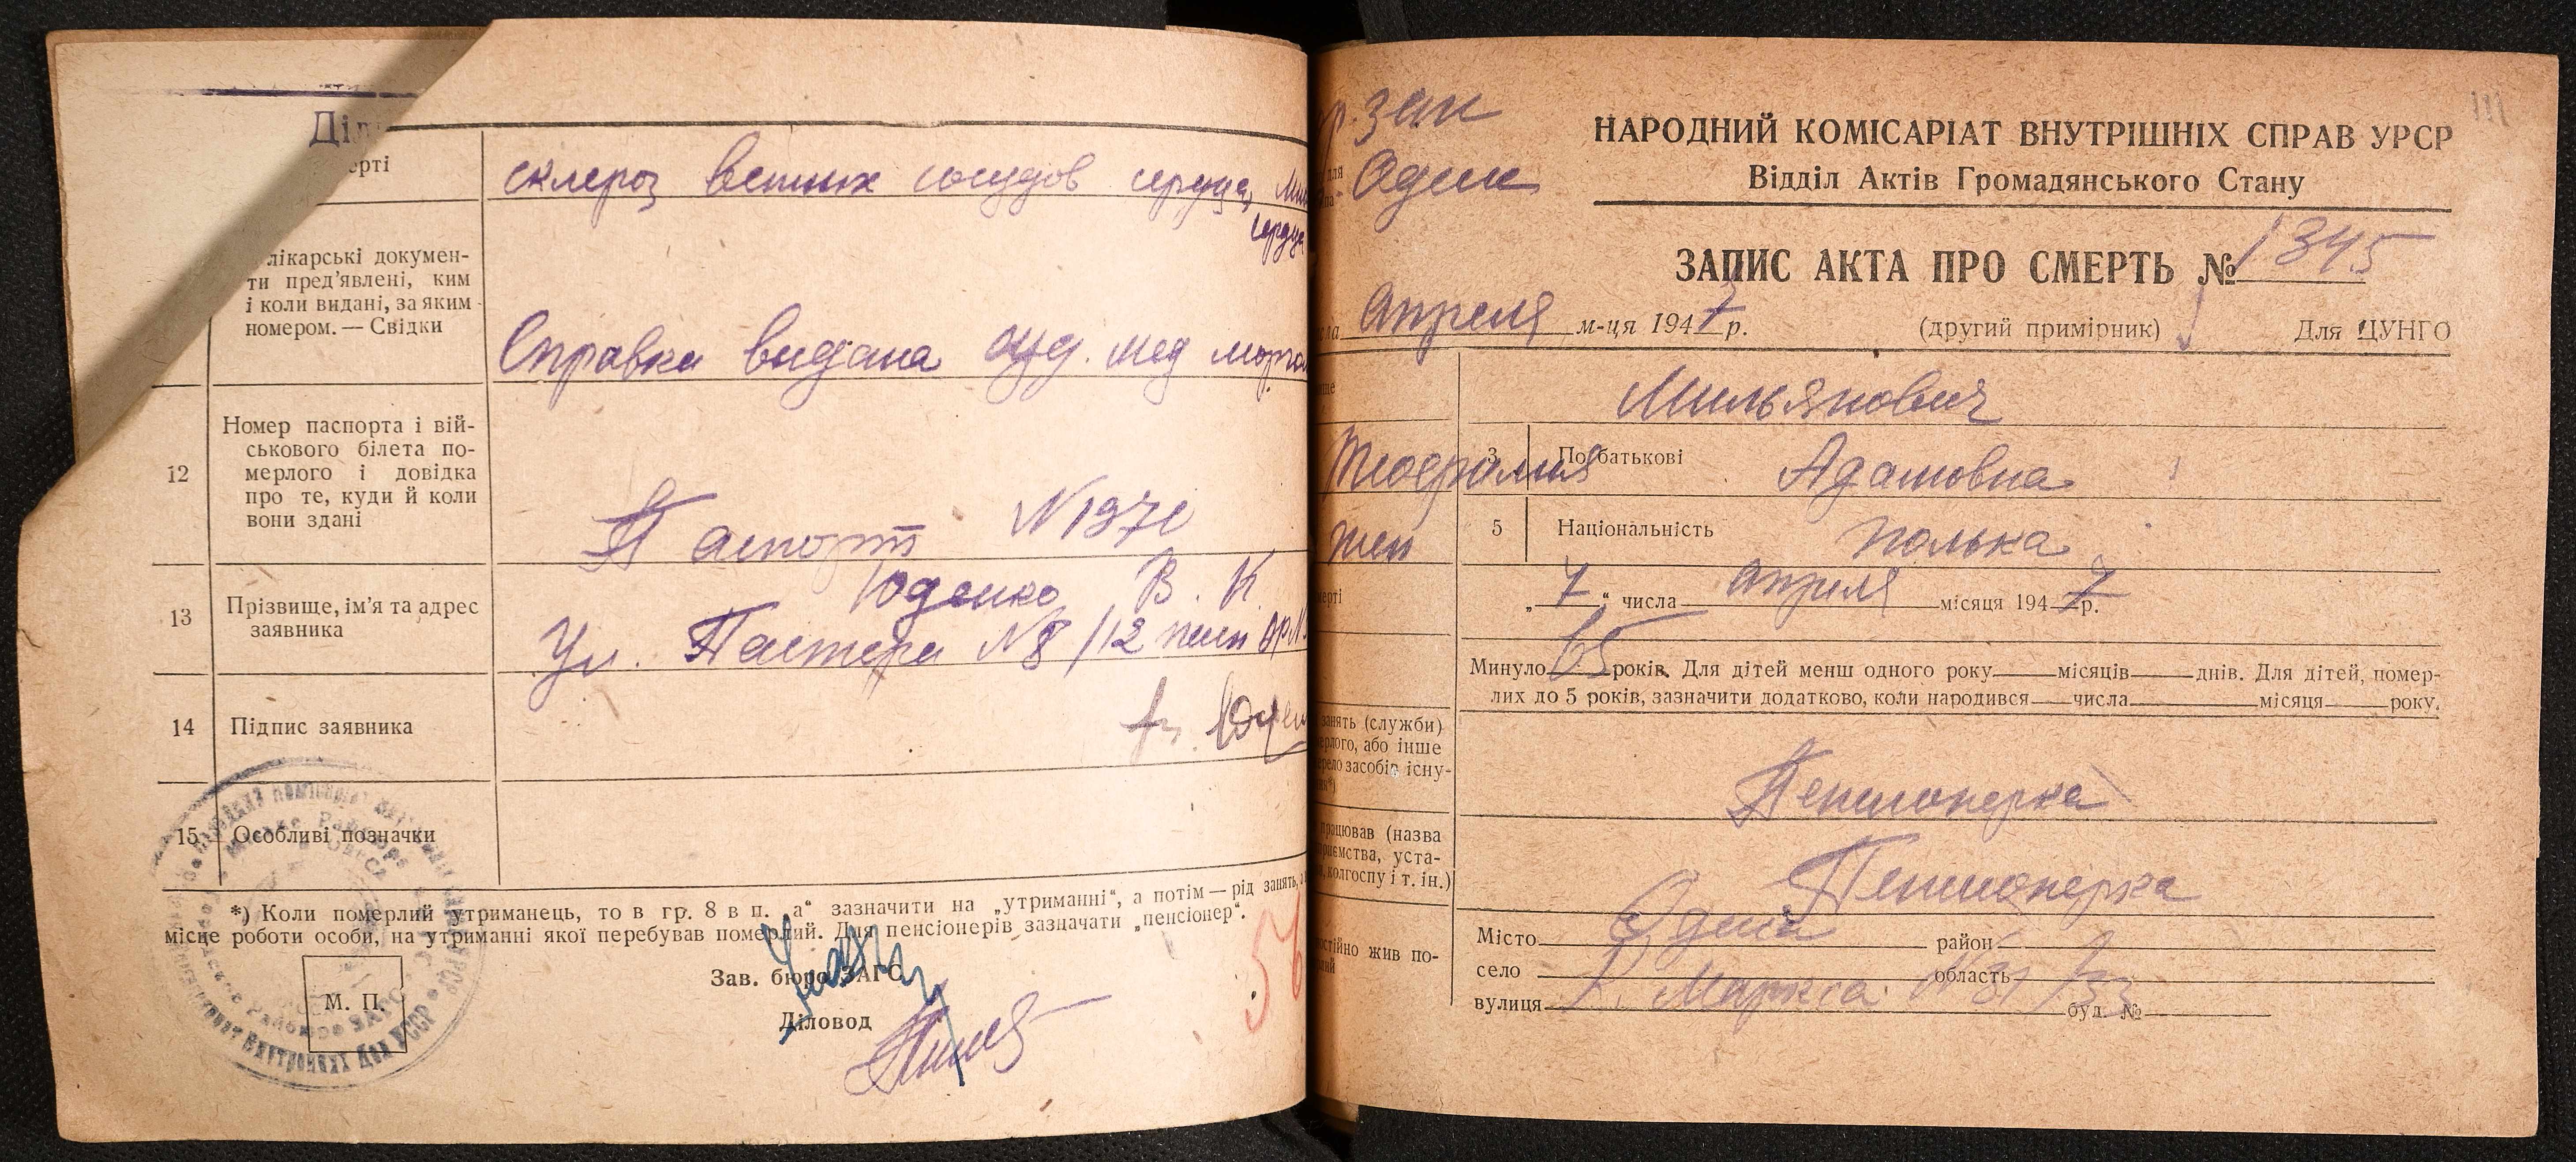 Діл
ерті
склероз венных сосудов сердца,
сердца
лікарські докумен-
ти пред'явлені, ким
і коли видані, за яким
номером. — Свідки
Справка видана суд. мед морга
12
Номер паспорта і вій-
ськового білета по-
мерлого і довідка
про те, куди й коли
вони здані
Паспорт N 1971
13
Прізвище, ім'я та адрес
заявника
Юденко В. К
Ул. Пастера N 8/12
14
Підпис заявника
15
Особливі позначки
*) Коли померлий утриманець, то в гр. 8 в п. „а“ зазначити на „утриманні“, а потім — рід занять,
місце роботи особи, на утриманні якої перебував померлий. Для пенсіонерів зазначати „пенсіонер“.
Зав. бюро ЗАГС
М. П.
Діловод
111
гр. зак
Одеск
НАРОДНИЙ КОМІСАРІАТ ВНУТРІШНІХ СПРАВ УРСР
Відділ Актів Громадянського Стану
ЗАПИС АКТА ПРО СМЕРТЬ № 1345
апреля м-ця 1947 р.
(другий примірник)
Для ЦУНГО
Мильянович
3 По батькові Адамовна
жен
5 Національність полька
ерті
„ 7 “ числа апреля місяця 1947 р.
Минуло 65 років. Для дітей менш одного року місяців днів. Для дітей, помер-
лих до 5 років, зазначити додатково, коли народився числа місяця року.
занять (служби)
ерлого, або інше
ерело засобів існу-
Пенсионерка
працював (назва
приємства, уста-
колгоспу і т. ін.)
Пенсионерка
остійно жив по-
Місто Одеса район
село область
вулиця К. Маркса N 31 буд. №